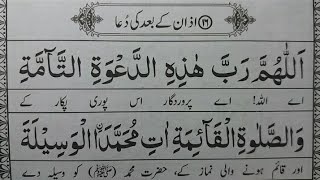 (۱۶) اذان کے بعد کی دُعا
اَللّٰهُمَّ رَبَّ هٰذِهِ الدَّعْوَةِ التَّآمَّةِ
اے اللہ! اے پروردگار اس پوری پکار کے
وَالصَّلٰوةِ الْقَآئِمَةِ اٰتِ مُحَمَّدَاۨ الْوَسِيْلَةَ
اور قائم ہونے والی نماز کے، حضرت محمد (ﷺ) کو وسیلہ دے